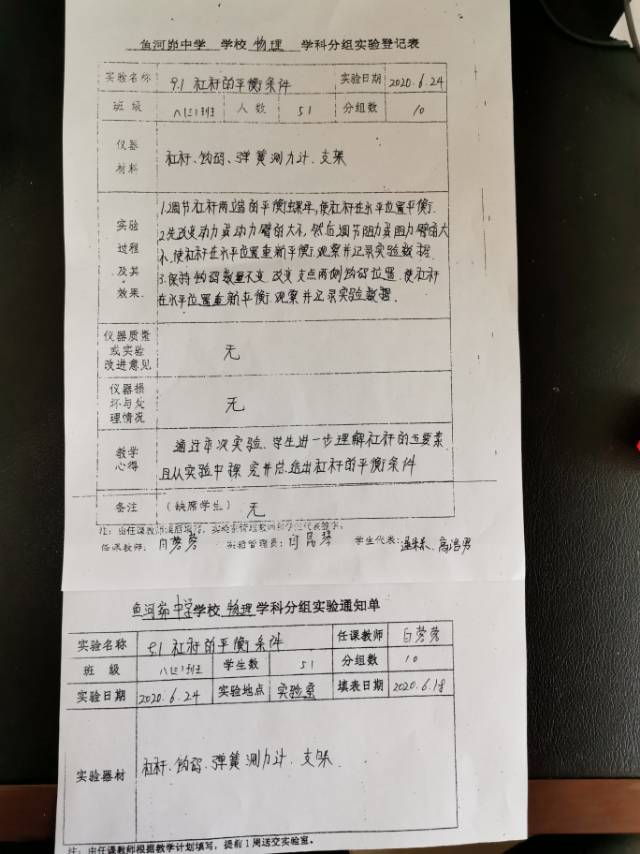 鱼河峁中学 学校 物理 学科分组实验登记表
实验名称 9.1 杠杆的平衡条件 实验日期 2020.6.24
班级 八(三)班 人数 51 分组数 10
仪器材料 杠杆、钩码、弹簧测力计、支架
实验过程及其效果
1.调节杠杆两端的平衡螺母,使杠杆在水平位置平衡.
2.先改变动力臭动力臂的大小,然后调节阻力臭阻力臂的大
小,使杠杆在水平位置重新平衡.观察并记录实验数据.
3.保持钩码数量不变,改变支点两侧钩码位置.使杠杆
在水平位置重新平衡.观察并记录实验数据.
仪器质量或实验改进意见 无
仪器损坏与处理情况 无
教学心得
通过本次实验、学生进一步理解杠杆的五要素
且从实验中探究并总结出杠杆的平衡条件
备注 (缺席学生) 无
注:由任课教师
任课教师: 白 实验管理员: 学生代表:
鱼河峁中学学校 物理学科分组实验通知单
实验名称 9.1 杠杆的平衡条件 任课教师 白
班级 八(三)班 学生数 51 分组数 10
实验日期 2020.6.24 实验地点 实验室 填表日期 2020.6.18
实验器材 杠杆、钩码、弹簧测力计、支架
注:由任课教师根据教学计划填写,提前1周送交实验室。